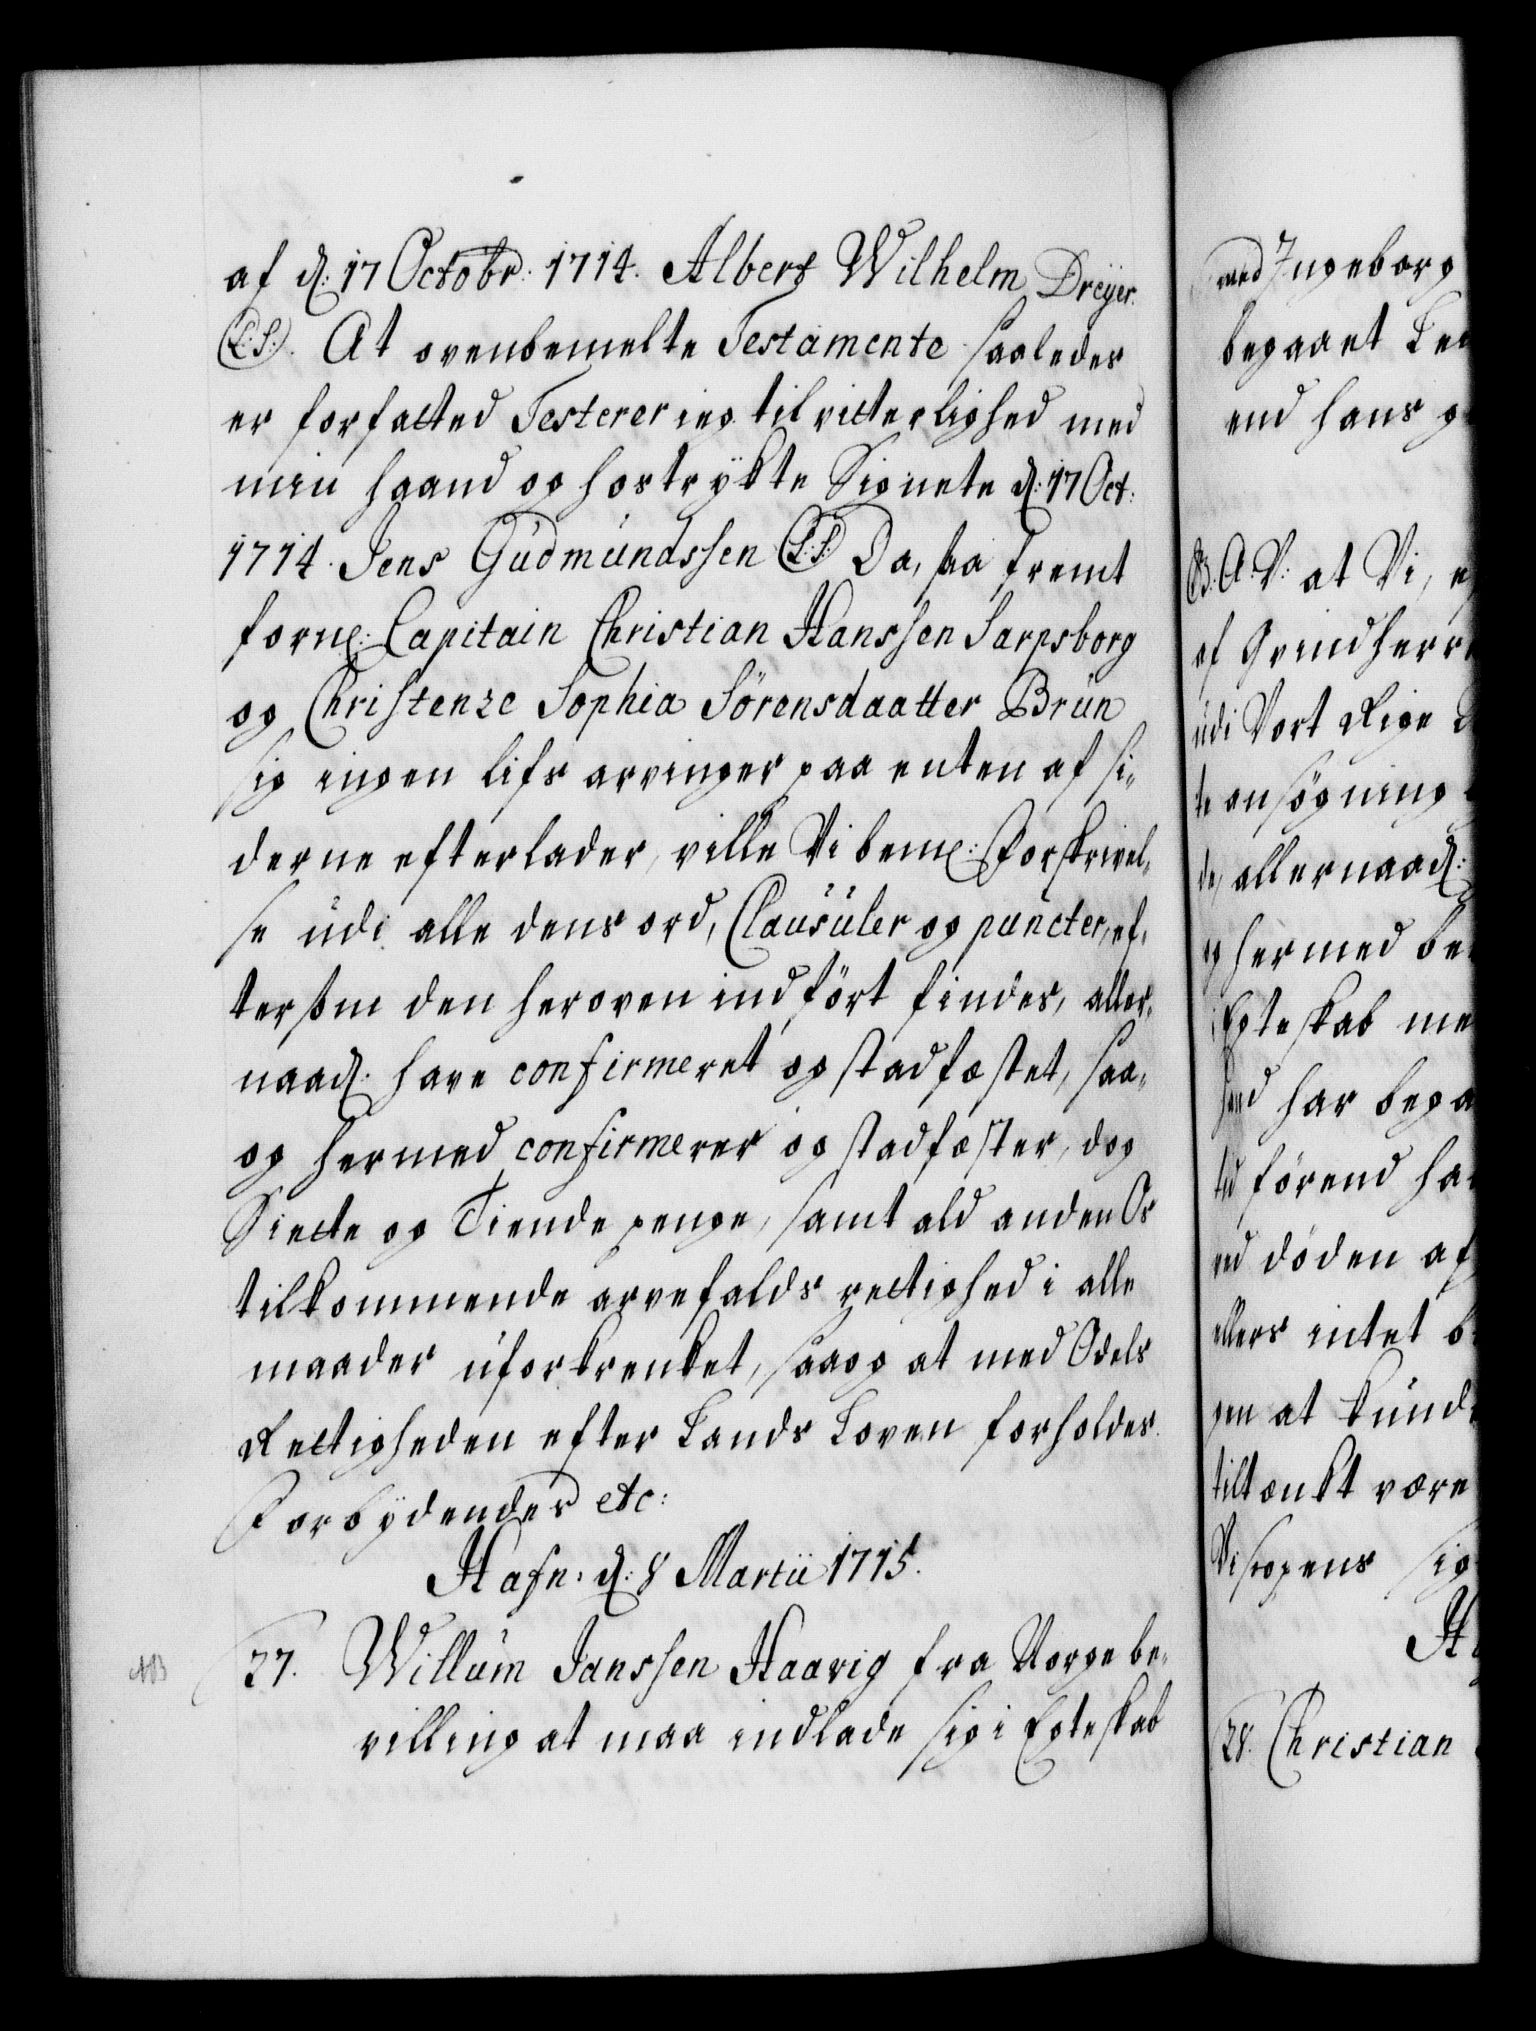 af d: 17 Octobr: 1714. Albert Wilhelm Dreÿer.
(L.S.). At ovenbemelte Testamente saaledes
er forfatted Testerer ieg til vitterlighed med
min haand og hostrÿkte Signete d: 17 Oct:
1714. Jens Gudmundssen (L.S.) Da, saa fremt
forne: Capitain Christian Hanssen Sarpsborg
og Christenze Sophia Sörensdaatter Brun
sig ingen lifs arvinger paa enten af si-
derne efterlader, ville Vi bemte: Forskrivel-
se udi alle dens ord, Clausuler og puncter, ef-
tersom den heroven indfört findes, aller-
naad: have confirmeret og stadfæstet, saa-
og hermed confirmerer og stadfæster, dog
Siette og Tiende penge, samt ald anden Os
tilkommende arvefalds rettighed i alle
maader uforkrenket, saa og at med Odels
Rettigheden efter Lands Loven forholdes.
Forbÿdendes etc:
Hafn: d: 8 Martii 1715.
27. Willum Janssen Haavig fra Norge be-
villing at maa indlade sig i Egteskab
med Ingeborg
begaaet
end hans
B. A. V: at Vi,
af Grundherr
udi Vort Rige
te ansögning
de, allernaad:
og hermed be
i Egteskab me
har bega
förend ha
döden af
ellers intet b
gen at kunde
tiltænkt være
Bispens sig
28. Christian